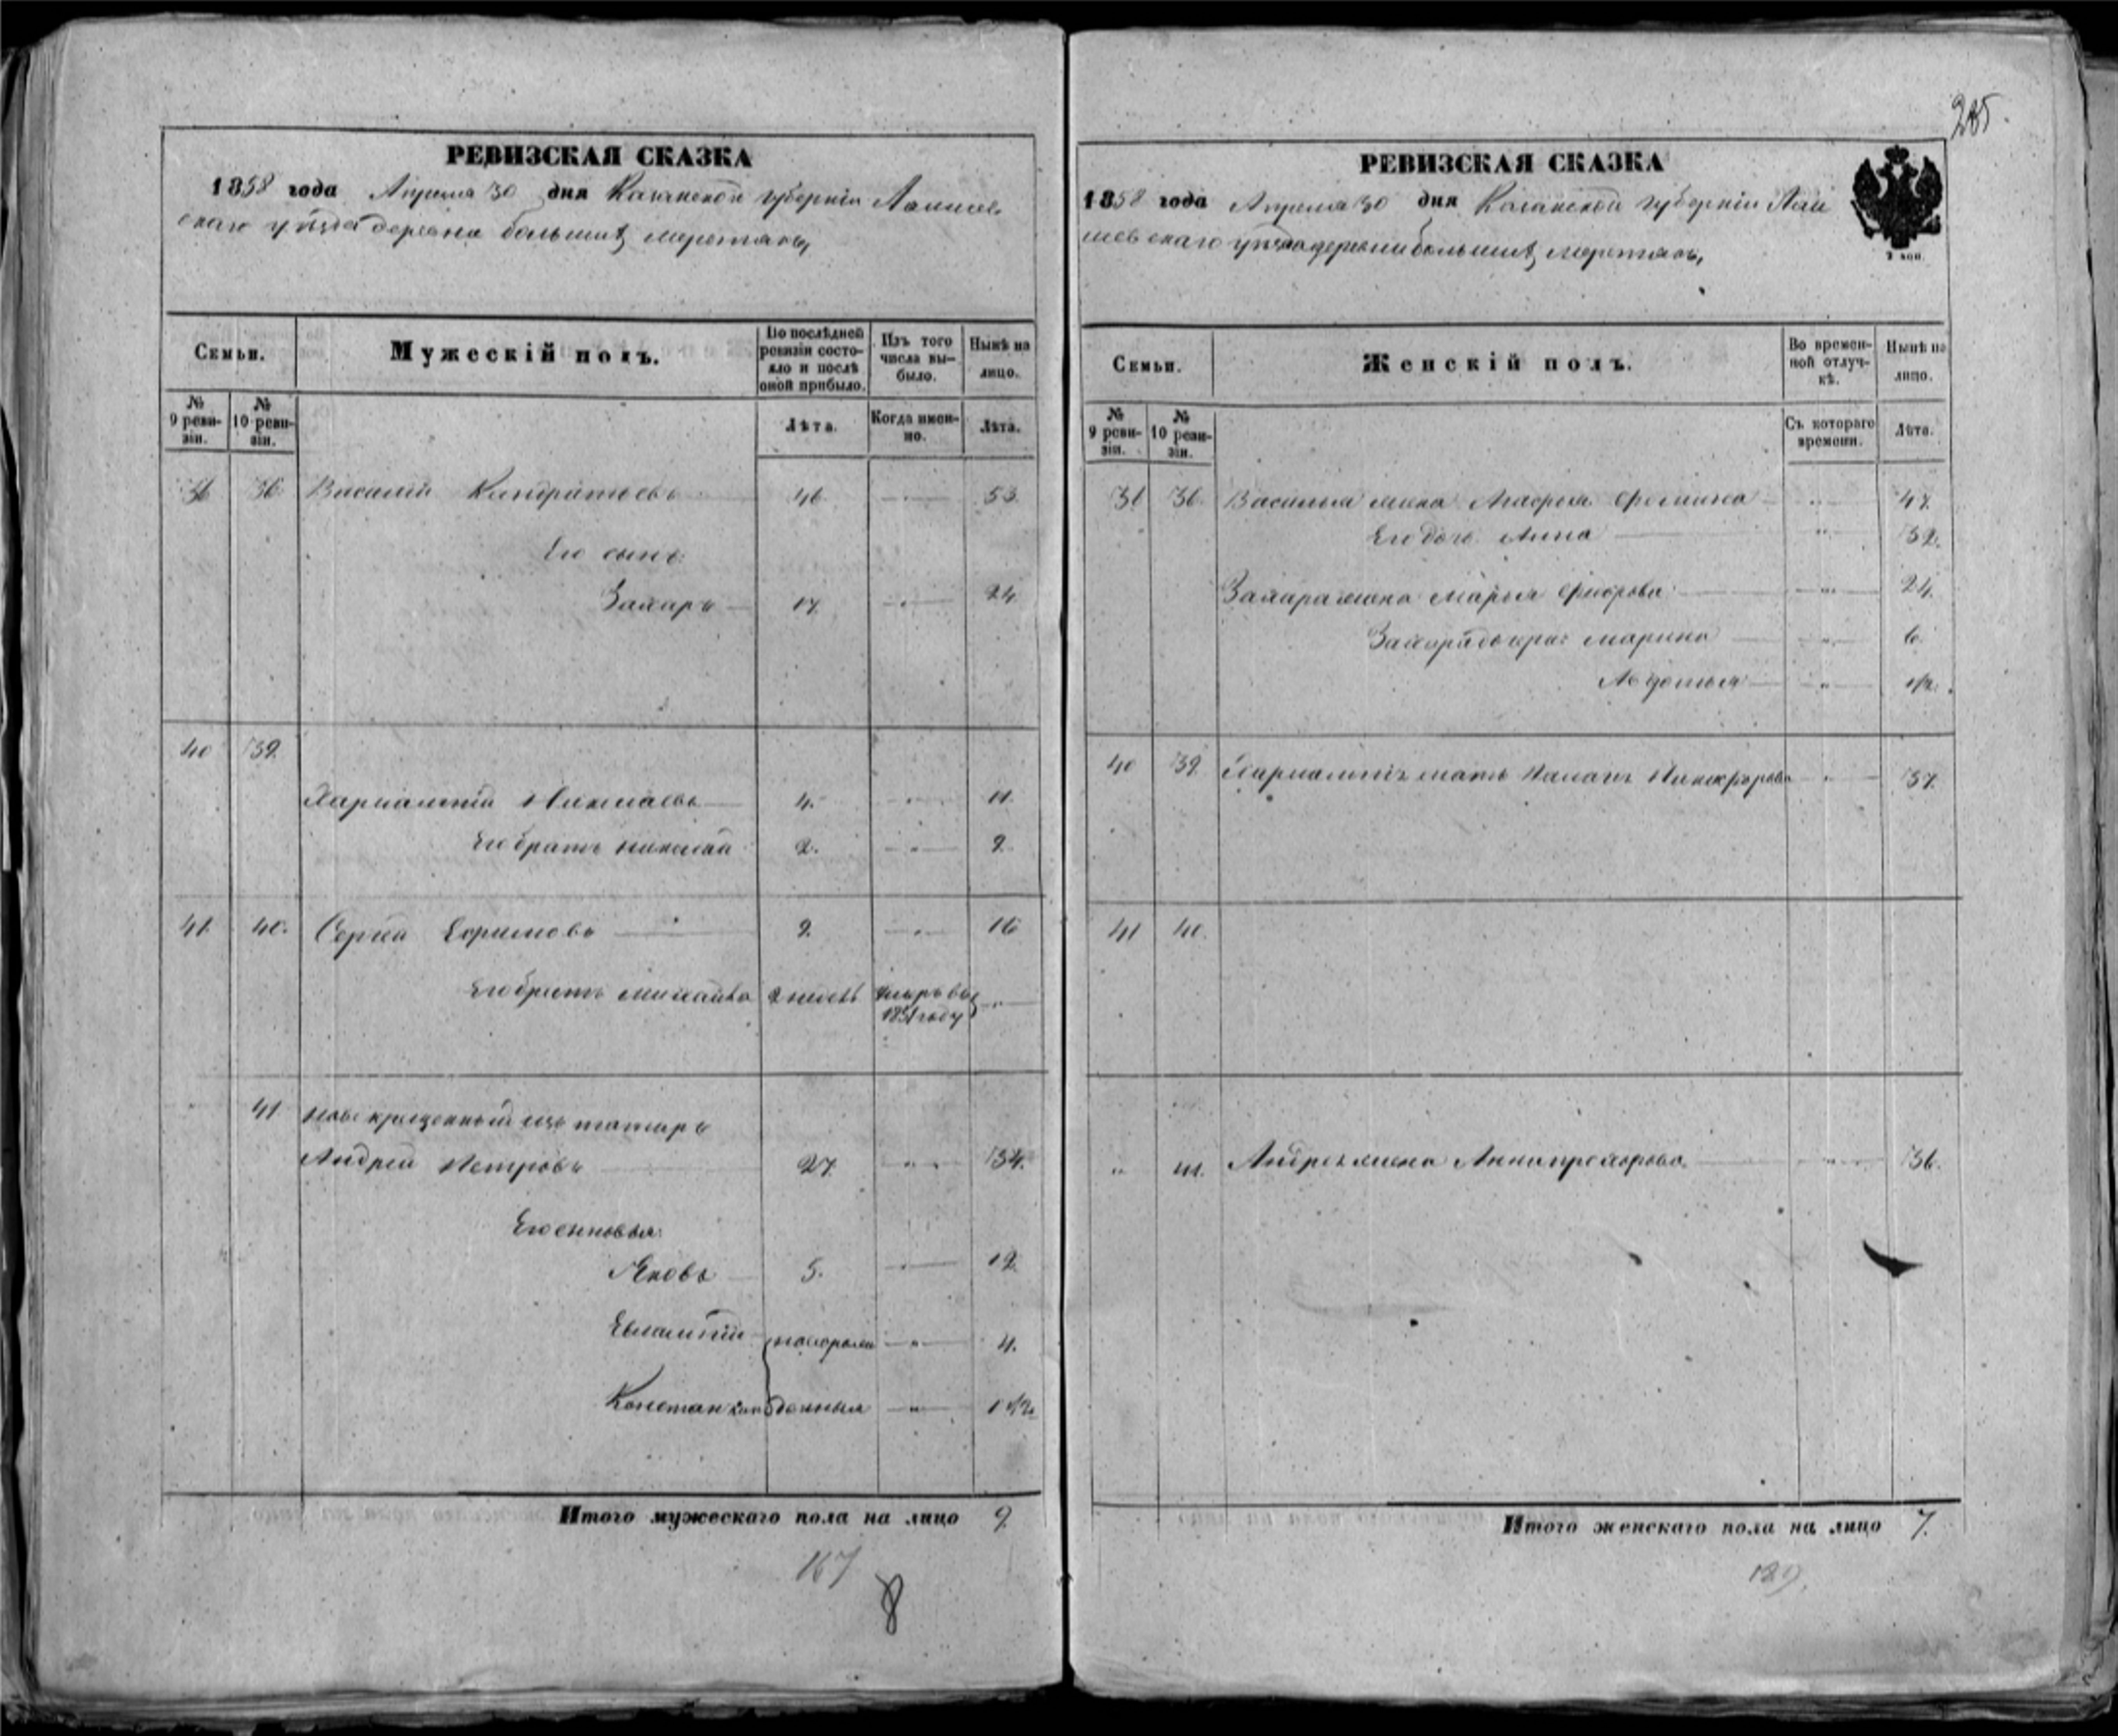 285.
РЕВИЗСКАЯ СКАЗКА
1858 года Апреля 30 дня Казанской губерніи Лаишев-
скаго уѣзда деревни большихъ
Семьи.
Мужескій полъ.
По послѣдней ревизіи состо-яло и послѣ оной прибыло.
Изъ того числа вы-было.
Нынѣ на лицо.
№ 9 реви-зіи.
№ 10 реви-зіи.
Лѣта.
Когда имен-но.
Лѣта.
36 Василій Кандратьевъ 46 53.
Его сынъ
Захаръ 17. 24
40 39.
Харлампій Николаевъ 4. 11.
Его братъ Николай 2. 9
41. 40. Сергей Ефимовъ 9. 16
Его братъ Михайла 2 недѣл умеръ въ
1851 году
41 новокрещенный изъ татаръ
Андрей Петровъ 27. 34.
Его сыновья:
Яковъ 5. 12.
Евлампій 4.
Константинъ 1 1/2.
послѣ рожденныя
Итого мужескаго пола на лицо 9.
167
8
РЕВИЗСКАЯ СКАЗКА
1858 года Апреля 30 дня Казанской губерніи Лаи
шевскаго уѣзда деревни большихъ
2 коп.
Семьи.
Женскій полъ.
Во времен-ной отлуч-кѣ.
Нынѣ на лицо.
№ 9 реви-зіи.
№ 10 реви-зіи.
Съ котораго времени.
Лѣта.
36. Василья жена Агафья Фомина 47.
Его дочь Анна
Захара жена Марья 24.
Захара дочери: Марина 6.
Авдотья 1/2.
40 39. Харлампія мать Никифорова 37.
41 40.
41. Андрея жена Анна Прохорова 36.
Итого женскаго пола на лицо 7.
189.